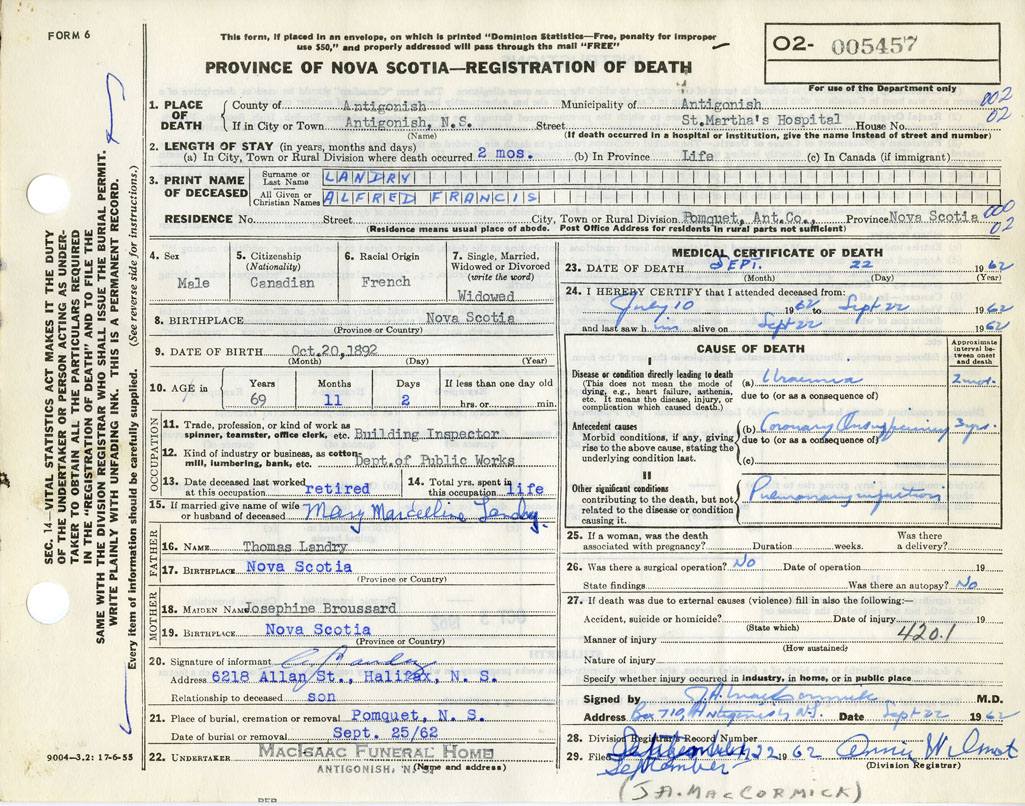 FORM 6
This form, if placed in an envelope, on which is printed "Dominion Statistics—Free, penalty for improper
use $50," and properly addressed will pass through the mail "FREE"
PROVINCE OF NOVA SCOTIA—REGISTRATION OF DEATH
O2- 005457
For use of the Department only
SEC. 14—VITAL STATISTICS ACT MAKES IT THE DUTY
OF THE UNDERTAKER OR PERSON ACTING AS UNDER-
TAKER TO OBTAIN ALL THE PARTICULARS REQUIRED
IN THE "REGISTRATION OF DEATH" AND TO FILE THE
SAME WITH THE DIVISION REGISTRAR WHO SHALL ISSUE THE BURIAL PERMIT.
WRITE PLAINLY WITH UNFADING INK. THIS IS A PERMANENT RECORD.
Every item of information should be carefully supplied. (See reverse side for instructions.)
1. PLACE OF DEATH County of Antigonish Municipality of Antigonish 002
If in City or Town Antigonish, N.S. Street St.Martha's Hospital House No. 02
(Name) (If death occurred in a hospital or institution, give the name instead of street and number)
2. LENGTH OF STAY (in years, months and days)
(a) In City, Town or Rural Division where death occurred 2 mos. (b) In Province Life (c) In Canada (if immigrant)
3. PRINT NAME OF DECEASED Surname or Last Name LANDRY
All Given or Christian Names ALFRED FRANCIS
000
RESIDENCE No. Street City, Town or Rural Division Pomquet, Ant.Co., Province Nova Scotia 02
(Residence means usual place of abode. Post Office Address for residents in rural parts not sufficient)
4. Sex Male
5. Citizenship (Nationality) Canadian
6. Racial Origin French
7. Single, Married, Widowed or Divorced (write the word) Widowed
8. BIRTHPLACE Nova Scotia
(Province or Country)
9. DATE OF BIRTH Oct.20,1892
(Month) (Day) (Year)
10. AGE in Years 69 Months 11 Days 2 If less than one day old hrs. or min.
OCCUPATION
11. Trade, profession, or kind of work as
spinner, teamster, office clerk, etc. Building Inspector
12. Kind of industry or business, as cotton-
mill, lumbering, bank, etc. Dept.of Public Works
13. Date deceased last worked
at this occupation retired
14. Total yrs. spent in
this occupation life
15. If married give name of wife
or husband of deceased Mary Marcelline Landry.
FATHER
16. NAME Thomas Landry
17. BIRTHPLACE Nova Scotia
(Province or Country)
MOTHER
18. MAIDEN NAME Josephine Broussard
19. BIRTHPLACE Nova Scotia
(Province or Country)
20. Signature of informant
Address 6218 Allan St., Halifax, N. S.
Relationship to deceased son
21. Place of burial, cremation or removal Pomquet, N. S.
Date of burial or removal Sept. 25/62
22. UNDERTAKER MACISAAC FUNERAL HOME
ANTIGONISH, N. S. (Name and address)
9004—3.2: 17-6-55
MEDICAL CERTIFICATE OF DEATH
23. DATE OF DEATH SEPT. 22 1962
(Month) (Day) (Year)
24. I HEREBY CERTIFY that I attended deceased from:
July 10 1962 to Sept 22 1962
and last saw him alive on Sept 22 1962
CAUSE OF DEATH
Approximate interval between onset and death
I
Disease or condition directly leading to death
(This does not mean the mode of
dying, e.g., heart failure, asthenia,
etc. It means the disease, injury, or
complication which caused death.)
(a) Uraemia 2 mos.
due to (or as a consequence of)
Antecedent causes
Morbid conditions, if any, giving
rise to the above cause, stating the
underlying condition last.
(b) Coronary 3 yrs.
due to (or as a consequence of)
(c)
II
Other significant conditions
contributing to the death, but not
related to the disease or condition
causing it.
Pulmonary
25. If a woman, was the death
associated with pregnancy? Duration weeks. Was there
a delivery?
26. Was there a surgical operation? No Date of operation 19
State findings Was there an autopsy? No
27. If death was due to external causes (violence) fill in also the following:—
Accident, suicide or homicide? Date of injury 19
(State which)
420.1
Manner of injury
(How sustained)
Nature of injury
Specify whether injury occurred in industry, in home, or in public place
Signed by J.A. MacCormick M.D.
Address Box 710, Antigonish N.S. Date Sept 22 1962
28. Division Registrar's Record Number
29. Filed September 22 1962 Annie Wilmot
September
(Division Registrar)
(J.A. MACCORMICK)